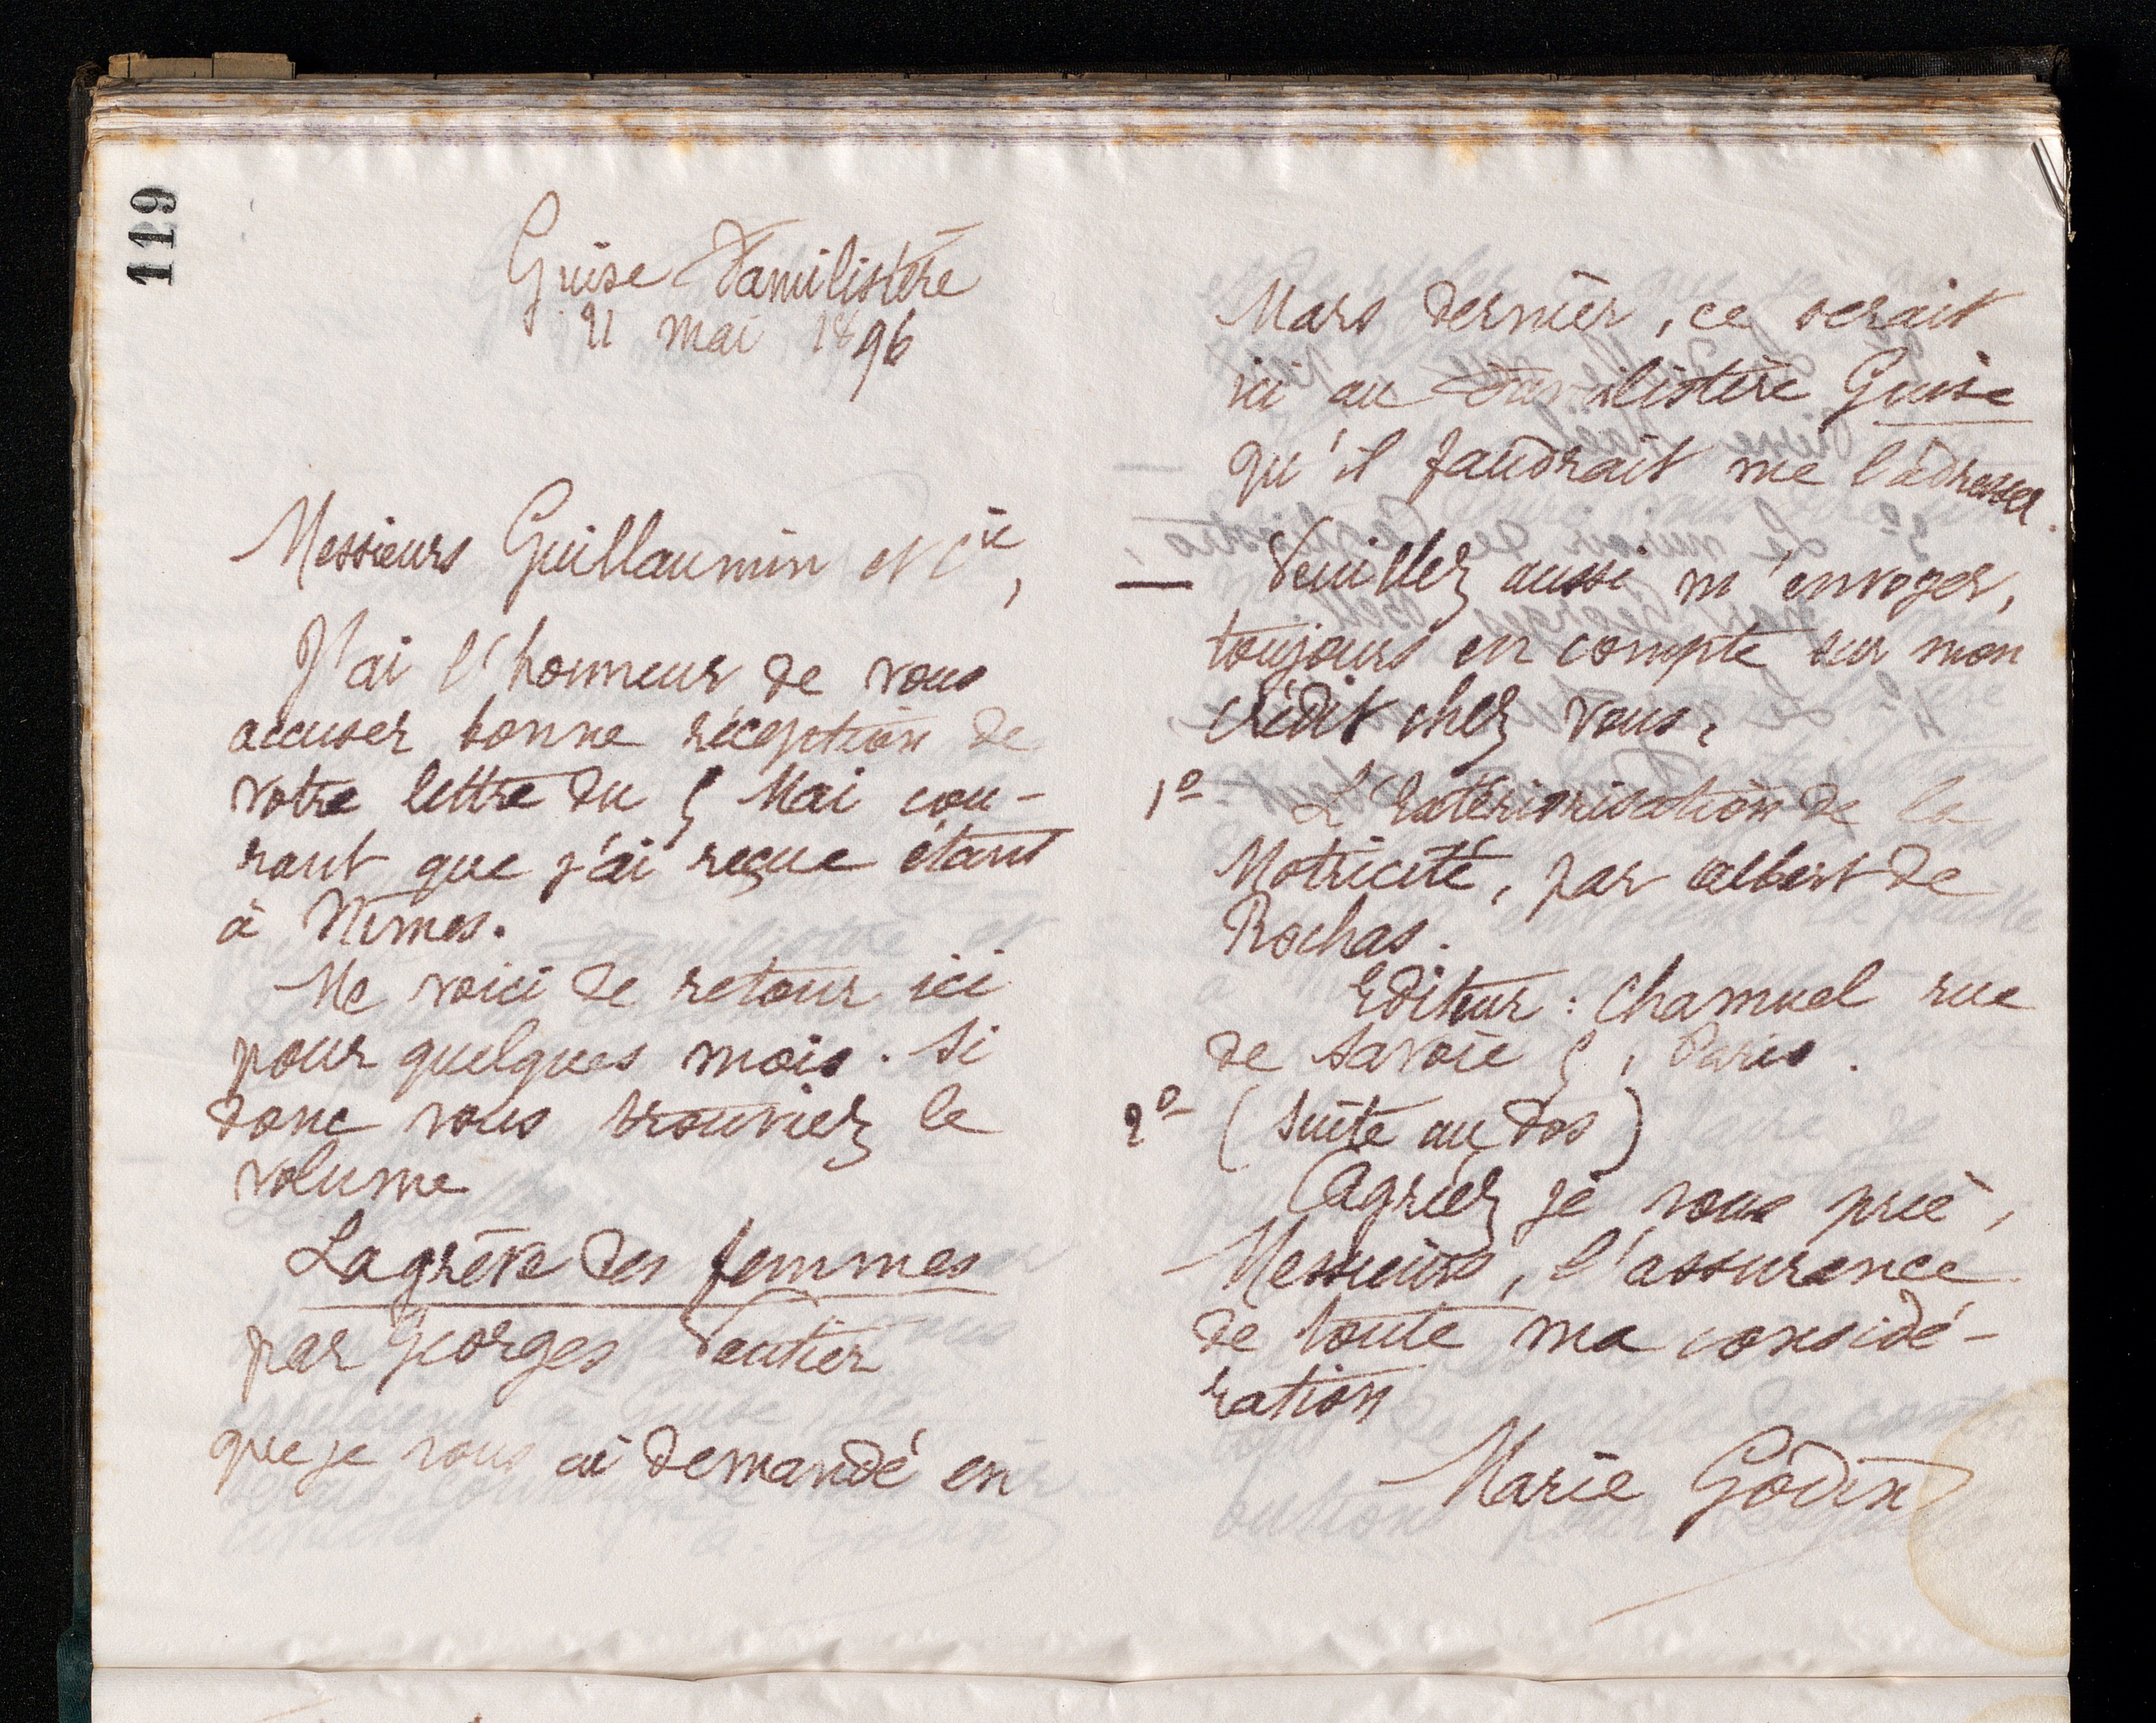 119
Guise Familistère
21 mai 1896
Messieurs Guillaumin et Cie,
J'ai l'honneur de vous
accuser bonne réception de
votre lettre du 5 Mai cou-
rant que j'ai reçue étant
à Nîmes.
Me voici de retour ici
pour quelques mois. Si
donc vous trouviez le
volume
La grève des femmes
par Georges Vautier
que je vous ai demandé en
Mars dernier, ce serait
ici au Familistère Guise
qu'il faudrait me l'adresser.
— Veuillez aussi m'envoyer,
toujours en compte sur mon
crédit chez vous,
1o L'Extériorisation de la
Motricité, par Albert de
Rochas.
Editeur : Chamuel rue
de Savoie 5, Paris.
2o (Suite au dos)
Agréez je vous prie,
Messieurs, l'assurance
de toute ma considé-
ration
Marie Godin